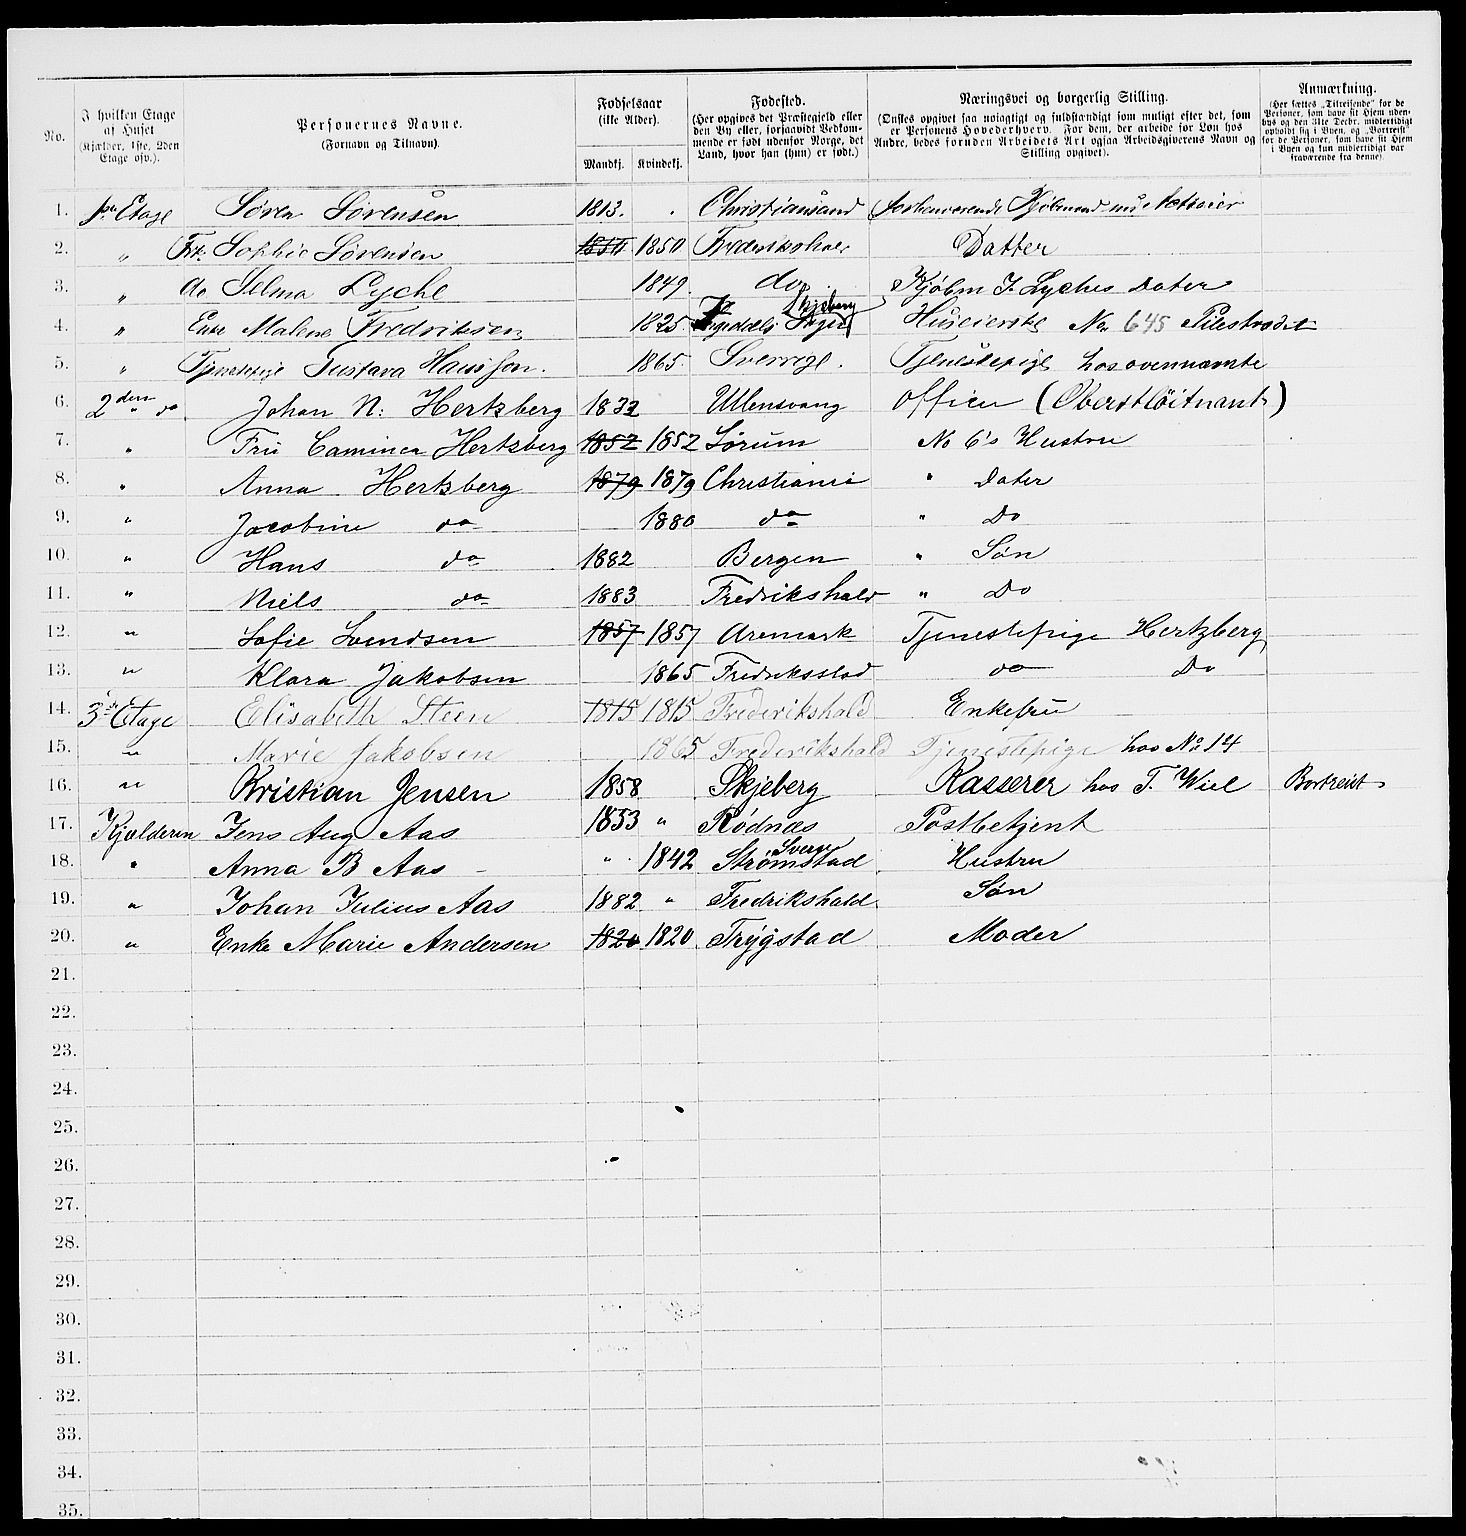 No. | I hvilken Etage af Huset (Kjælder, 1ste, 2den Etage osv.). | Personernes Navne. (Fornavn og Tilnavn). | Fødselsaar (ikke Alder). Mandkj. | Kvindekj. | Fødested. (Her opgives det Præstegjeld eller den By eller, forsaavidt Vedkommende er født udenfor Norge, det Land, hvor han (hun) er født.) | Næringsvei og borgerlig Stilling. (Ønskes opgivet saa nøiagtigt og fuldstændigt som muligt efter det, som er Personens Hovederhverv. For dem, der arbeide for Løn hos Andre, bedes foruden Arbeidets Art ogsaa Arbeidsgiverens Navn og Stilling opgivet). | Anmærkning. (Her sættes „Tilreisende" for de Personer, som have sit Hjem udenbys og den 31te Decbr. midlertidigt opholdt sig i Byen, og „Bortreist" for de Personer, som have sit Hjem i Byen og kun midlertidigt var fraværende fra denne).
1. | 1ste Etage | Søren Sørensen | 1813. | . | Christiansand | forhenværende Kjøbmand nu
2. | " | Frk. Sophie Sørensen | 1850 | 1850 | Frederikshald | Datter
3. | " | do Selma Lyche | | 1849. | do. | Kjøbm J. Lyches Dater
4. | " | Enke Malene Fredriksen | | 1825. | Skjeberg | Huseierske No 645 Pilestrædet
5. | " | Tjenestepige Gustava Hansson. | | 1865. | Sverrige. | Tjenestepige hos ovennævnte
6. | 2den " do | Johan N: Hertzberg | 1832 | | Ullensvang | Officer (Oberstløitnant)
7. | " | Fru Camilla Hertzberg | 1852 | 1852 | Sørum | No 6's Hustru
8. | " | Anna Hertzberg | 1879 | 1879 | Christiania | " Dater
9. | " | Jacobine do | | 1880 | do | " Do
10. | " | Hans do | 1882 | | Bergen | " Søn
11. | " | Niels do | 1883 | | Fredrikshald | " Do
12. | " | Sofie Svendsen | 1857 | 1857 | Aremark | Tjenestepige Hertzberg
13. | " | Klara Jakobsen | | 1865 | Fredriksstad | do Do
14. | 3die Etage | Elisabeth Steen | 1815 | 1815 | Frederikshald | Enkefru
15. | " | Marie Jakobsen | | 1865 | Frederikshald | Tjenestepige hos No 14
16. | " | Kristian Jensen | 1858 | | Skjeberg | Kasserer hos T. Wiel | Bortreist
17. | Kjælderen | Jens Aug Aas | 1853 | " | Rødnæs | Postbetjent
18. | " | Anna B Aas | " | 1842 | Strømstad Sverge | Hustru
19. | " | Johan Julius Aas | 1882 | " | Fredrikshald. | Søn
20. | " | Enke Marie Andersen | 1820 | 1820 | Trygstad | Moder
21.
22.
23.
24.
25.
26.
27.
28.
29.
30.
31.
32.
33.
34.
35.